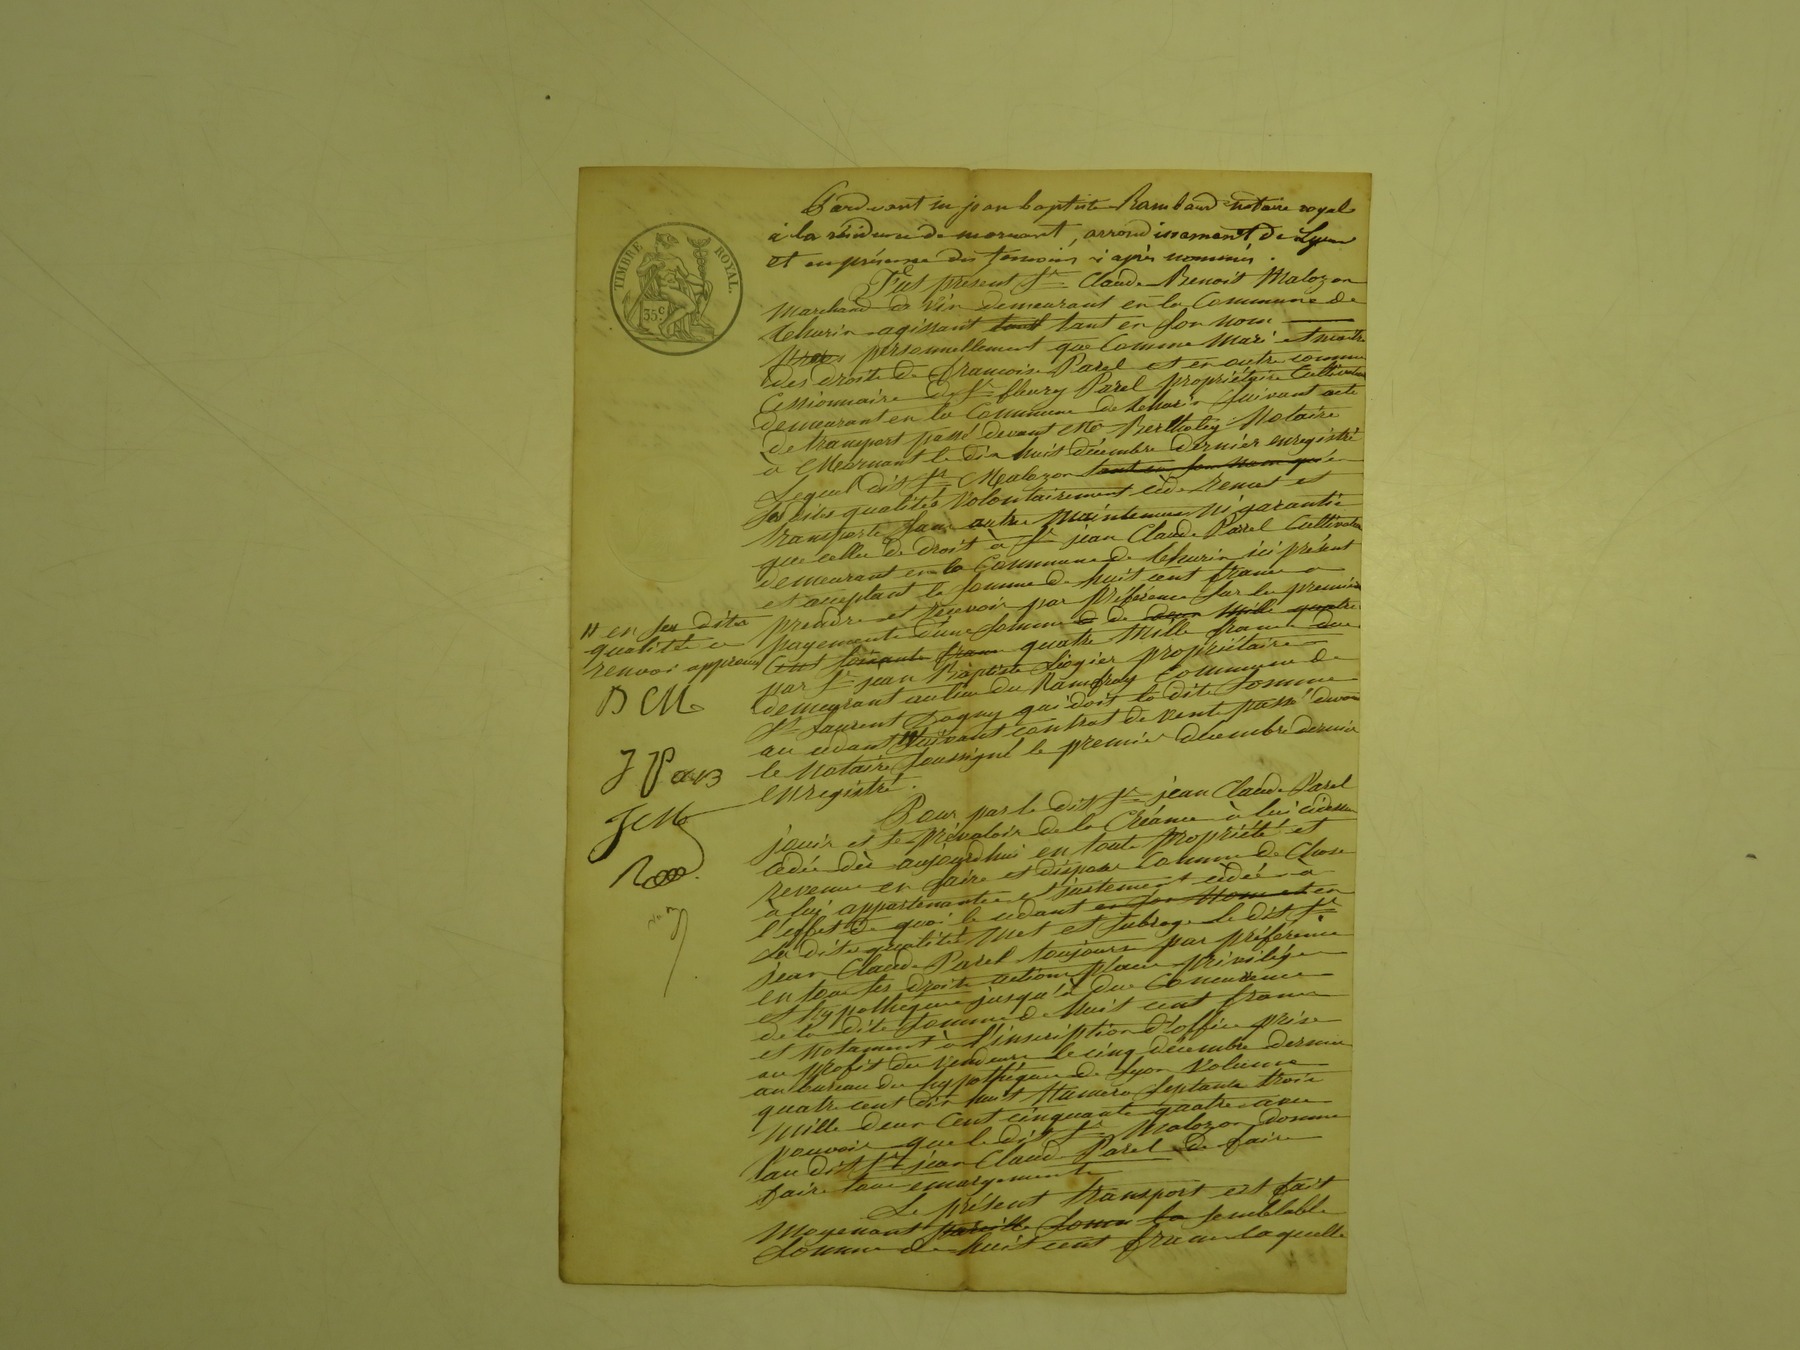 Pardevant me jean baptiste Rambaud notaire royal
à la résidence de mornant, arrondissement de Lyon
et en présence des temoins ci après nommés.
TIMBRE ROYAL.
35c
Fut présent Sr Claude Benoit Malozon
Marchand de vin demeurant en la Commune de
tchurin agissant tant tant en son nom
personnellement que Comme Mari et maitre
des droits de francoise Parel et en outre comme
Cessionnaire de Sr fleury Parel propriétaire Cultivateur
demeurant en la Commune de tchurin suivant acte
de transport passé devant Me Bertholey Notaire
à Mornant le dix huit décembre dernier enregistré
Lequel dit Sr Malozon tant en son nom qu'en
ses dites qualités volontairement cède remet et
transporte sans autre maintenue ni garantie
que celle de droit à Sr jean Claude Parel Cultivateur
demeurant en la Commune de tchurin ici présent
et acceptant la somme de huit cent francs a
prendre et recevoir par préférence sur les premiers
payements d'une somme de deux Mille quatre
Cent soixante francs quatre Mille francs due
par Sr jean Baptiste Liogier propriétaire
demeurant au lieu du Ramfray Commune de
St Laurent Dagny qui doit la dite somme
au cédant " suivant contrat de vente passé devant
le Notaire soussigné le premier décembre dernier
enregistré.
" en ses dites
qualités ce
renvoi approuvé
BCM
J Parel
JCM
Pour par le dit Sr jean Claude Parel
jouir et se prévaloir de la Créance à lui cidessus
cédée dès aujourdhui en toute propriété et
revenu en faire et disposer comme de Chose
à lui appartenante et justement cédée à
l'effet de quoi le cédant en son Nom et en
sa dites qualités Met et subroge le dit Sr
jean Claude Parel toujours par préférence
en tous ses droits actions place privilége
et hypothèques jusqu'à due Concurrence
de la dite somme de huit cent francs
et Notament à l'inscription d'office prise
au profit du vendeur le cinq décembre dernier
au bureau des hypothéques de Lyon Volume
quatre cent dix huit Numéro septante trois
Mille deux Cent cinquante quatre avec
pouvoir que le dit Sr Malozon donne
au dit Sr jean Claude Parel de faire
faire tous emargements
Le présent transport est fait
Moyenant pareille somme la semblable
somme de huit cent francs laquelle